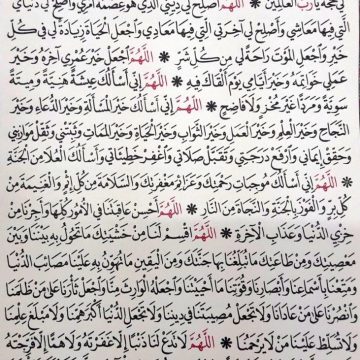 لي بحجة يا رب العالمين * اللهم أصلح لي ديني الذي هو عصمة أمري وأصلح لي دنياي
التي فيها معاشي وأصلح لي آخرتي التي فيها معادي واجعل الحياة زيادة لي في كل
خير واجعل الموت راحة لي من كل شر * اللهم اجعل خير عمري آخره وخير
عملي خواتمه وخير أيامي يوم ألقاك فيه * اللهم إني أسألك عيشة هنية وميتة
سوية ومردا غير مخز ولا فاضح * اللهم إني أسألك خير المسألة وخير الدعاء وخير
النجاح وخير العلم وخير العمل وخير الثواب وخير الحياة وخير الممات وثبتني وثقل موازيني
وحقق إيماني وارفع درجتي وتقبل صلاتي واغفر خطيئاتي وأسألك العلا من الجنة
اللهم إني أسألك موجبات رحمتك وعزائم مغفرتك والسلامة من كل إثم والغنيمة من
كل بر والفوز بالجنة والنجاة من النار * اللهم أحسن عاقبتنا في الأمور كلها وأجرنا من
خزي الدنيا وعذاب الآخرة * اللهم اقسم لنا من خشيتك ما تحول به بيننا وبين
معصيتك ومن طاعتك ما تبلغنا بها جنتك ومن اليقين ما تهون به علينا مصائب الدنيا
ومتعنا بأسماعنا وأبصارنا وقوتنا ما أحييتنا واجعله الوارث منا واجعل ثأرنا على من ظلمنا
وانصرنا على من عادانا ولا تجعل مصيبتنا في ديننا ولا تجعل الدنيا أكبر همنا ولا مبلغ علمنا
ولا تسلط علينا من لا يرحمنا * اللهم لا تدع لنا ذنبا إلا غفرته ولا هما إلا فرجته